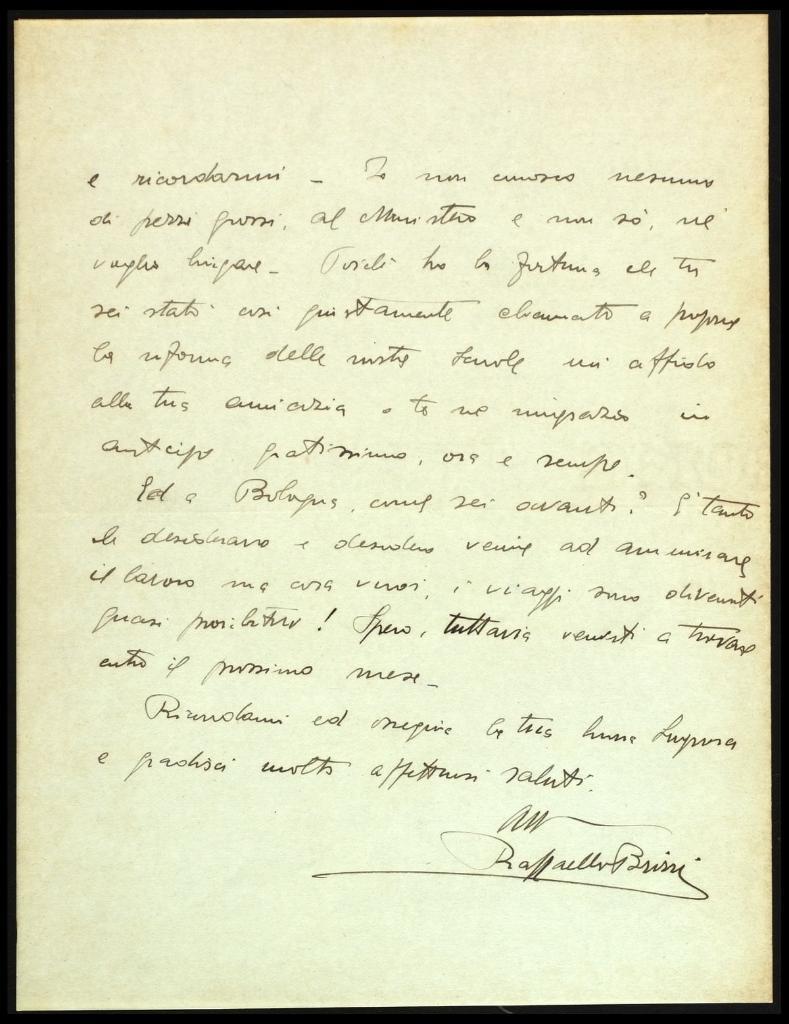 e ricordarmi - Io non conosco nessuno
di pezzi grossi, al Ministero e non sò, né
voglio brigare - Poiché ho la fortuna che tu
sei stato così giustamente chiamato a proporre
la riforma delle nostre Scuole mi affido
alla tua amicizia e te ne ringrazio in
anticipo gratissimo, ora e sempre.
Ed a Bologna, come sei avanti? È tanto
che desideravo e desidero venire ad ammirare
il lavoro ma cosa vuoi, i viaggi sono diventati
quasi proibitivi! Spero, tuttavia venirti a trovare
entro il prossimo mese -
Ricordami ed ossequia la tua buona Signora
e gradisci molti affettuosi saluti.
Aff
Raffaello Brizzi